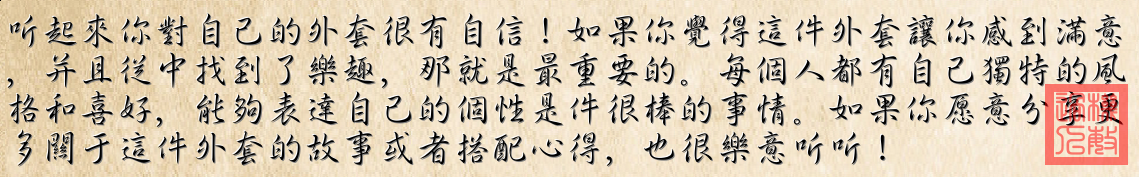 听起來你對自己的外套很有自信！如果你覺得這件外套讓你感到滿意
，并且從中找到了樂趣，那就是最重要的。每個人都有自己獨特的風
格和喜好，能夠表達自己的個性是件很棒的事情。如果你愿意分享更
多關于這件外套的故事或者搭配心得，也很樂意听听！